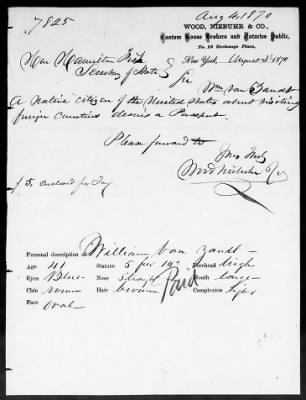 7825
Aug 4. 1870
WOOD, NIEBUHR & CO.,
Custom House Brokers and Notaries Public,
No. 18 Exchange Place,
Hon. Hamilton Fish
New York, August 3d 1870
Secretary of State
Sir
Wm Van Zandt
A native citizen of the United States about visiting
foreign countries desires a Passport.
Please forward to
Yrs Truly
Wood Niebuhr & Co
$5. enclosed for Tax
Personal description of William Van Zandt
Age 41 Stature 5 feet Forehead high
Eyes Blue Nose straight Mouth large
Chin round Hair brown Complexion light
Face oval
Paid